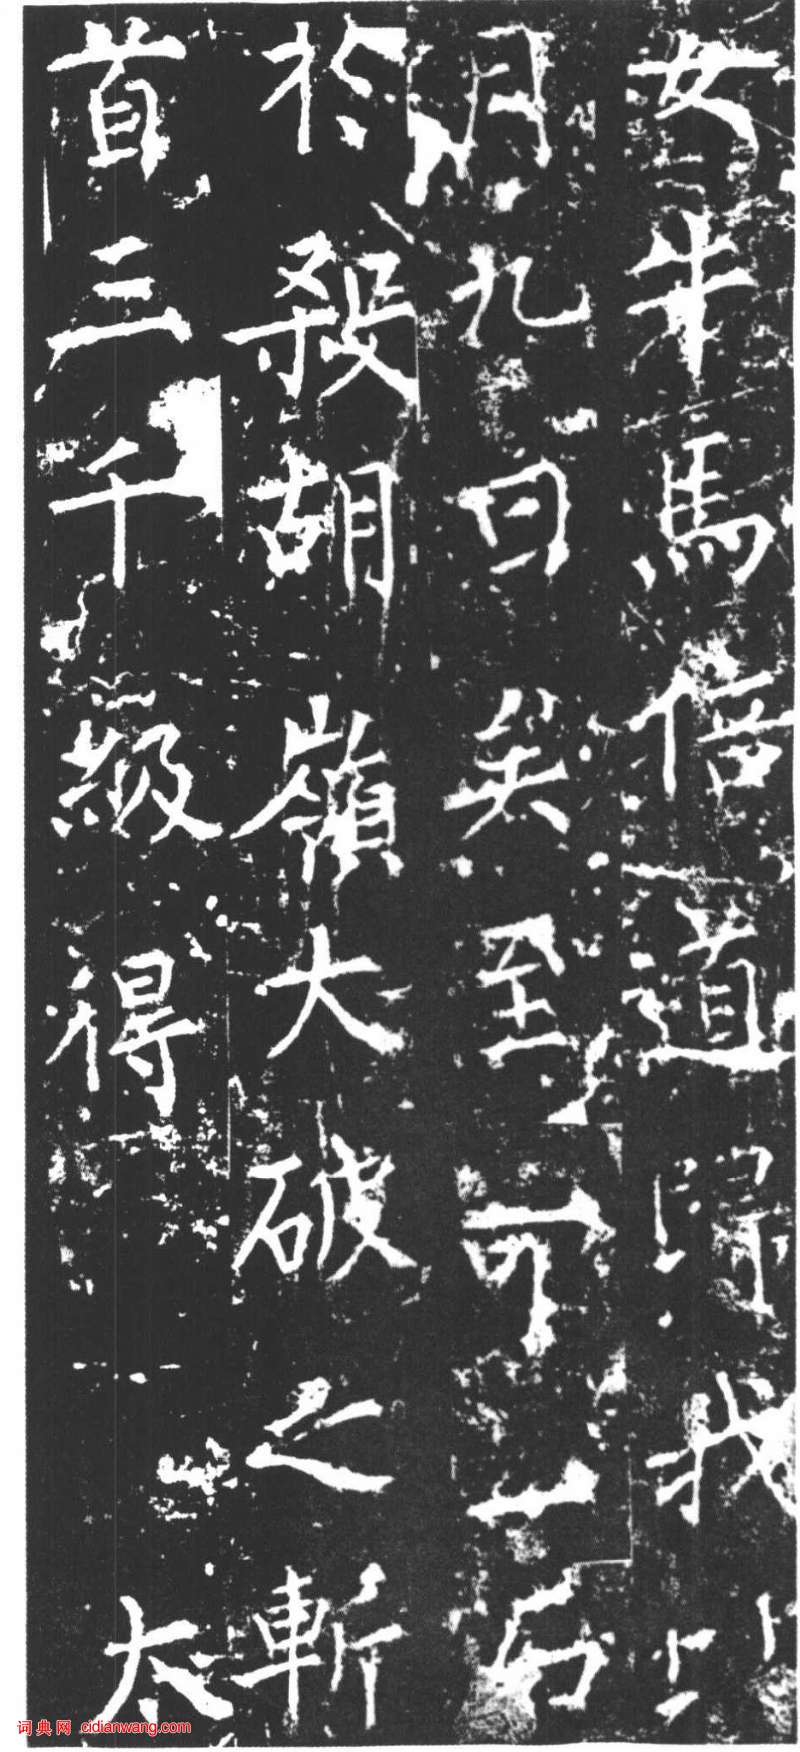 女牛馬倍道歸我
月九日矣至可一
於殺胡嶺大破之斬
首三千級得太
词典网 cidianwang.com